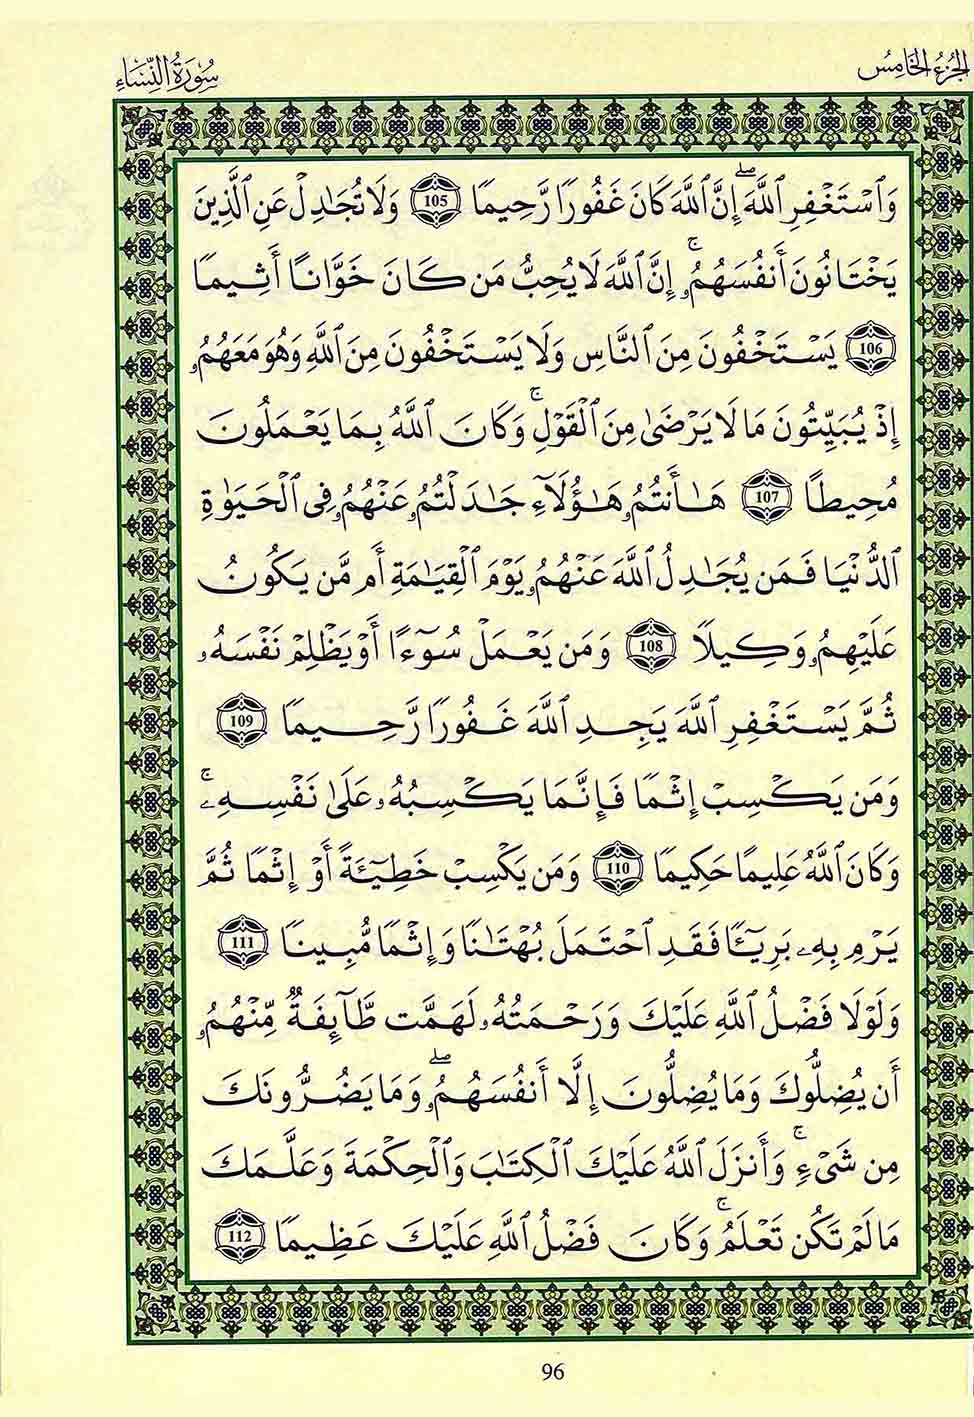 الجزء الخامس
سورة النساء
وَاسْتَغْفِرِ اللَّهَ ۖ إِنَّ اللَّهَ كَانَ غَفُورًا رَّحِيمًا 105 وَلَا تُجَٰدِلْ عَنِ الَّذِينَ
يَخْتَانُونَ أَنفُسَهُمُۥ ۚ إِنَّ اللَّهَ لَا يُحِبُّ مَن كَانَ خَوَّانًا أَثِيمًا
106 يَسْتَخْفُونَ مِنَ النَّاسِ وَلَا يَسْتَخْفُونَ مِنَ اللَّهِ وَهُوَ مَعَهُمُۥ
إِذْ يُبَيِّتُونَ مَا لَا يَرْضَىٰ مِنَ الْقَوْلِ ۚ وَكَانَ اللَّهُ بِمَا يَعْمَلُونَ
مُحِيطًا 107 هَٰأَنتُمُۥ هَٰؤُلَآءِ جَٰدَلْتُمُۥ عَنْهُمُۥ فِى الْحَيَوٰةِ
الدُّنْيَا فَمَن يُجَٰدِلُ اللَّهَ عَنْهُمُۥ يَوْمَ الْقِيَٰمَةِ أَم مَّن يَكُونُ
عَلَيْهِمُۥ وَكِيلًا 108 وَمَن يَعْمَلْ سُوٓءًا أَوْ يَظْلِمْ نَفْسَهُۥ
ثُمَّ يَسْتَغْفِرِ اللَّهَ يَجِدِ اللَّهَ غَفُورًا رَّحِيمًا 109
وَمَن يَكْسِبْ إِثْمًا فَإِنَّمَا يَكْسِبُهُۥ عَلَىٰ نَفْسِهِۦ ۚ
وَكَانَ اللَّهُ عَلِيمًا حَكِيمًا 110 وَمَن يَكْسِبْ خَطِيٓـَٔةً أَوْ إِثْمًا ثُمَّ
يَرْمِ بِهِۦ بَرِيٓـًٔا فَقَدِ احْتَمَلَ بُهْتَٰنًا وَإِثْمًا مُّبِينًا 111
وَلَوْلَا فَضْلُ اللَّهِ عَلَيْكَ وَرَحْمَتُهُۥ لَهَمَّت طَّآئِفَةٌ مِّنْهُمُۥ
أَن يُضِلُّوكَ وَمَا يُضِلُّونَ إِلَّا أَنفُسَهُمُۥ ۖ وَمَا يَضُرُّونَكَ
مِن شَىْءٍ ۚ وَأَنزَلَ اللَّهُ عَلَيْكَ الْكِتَٰبَ وَالْحِكْمَةَ وَعَلَّمَكَ
مَا لَمْ تَكُن تَعْلَمُ ۚ وَكَانَ فَضْلُ اللَّهِ عَلَيْكَ عَظِيمًا 112
96